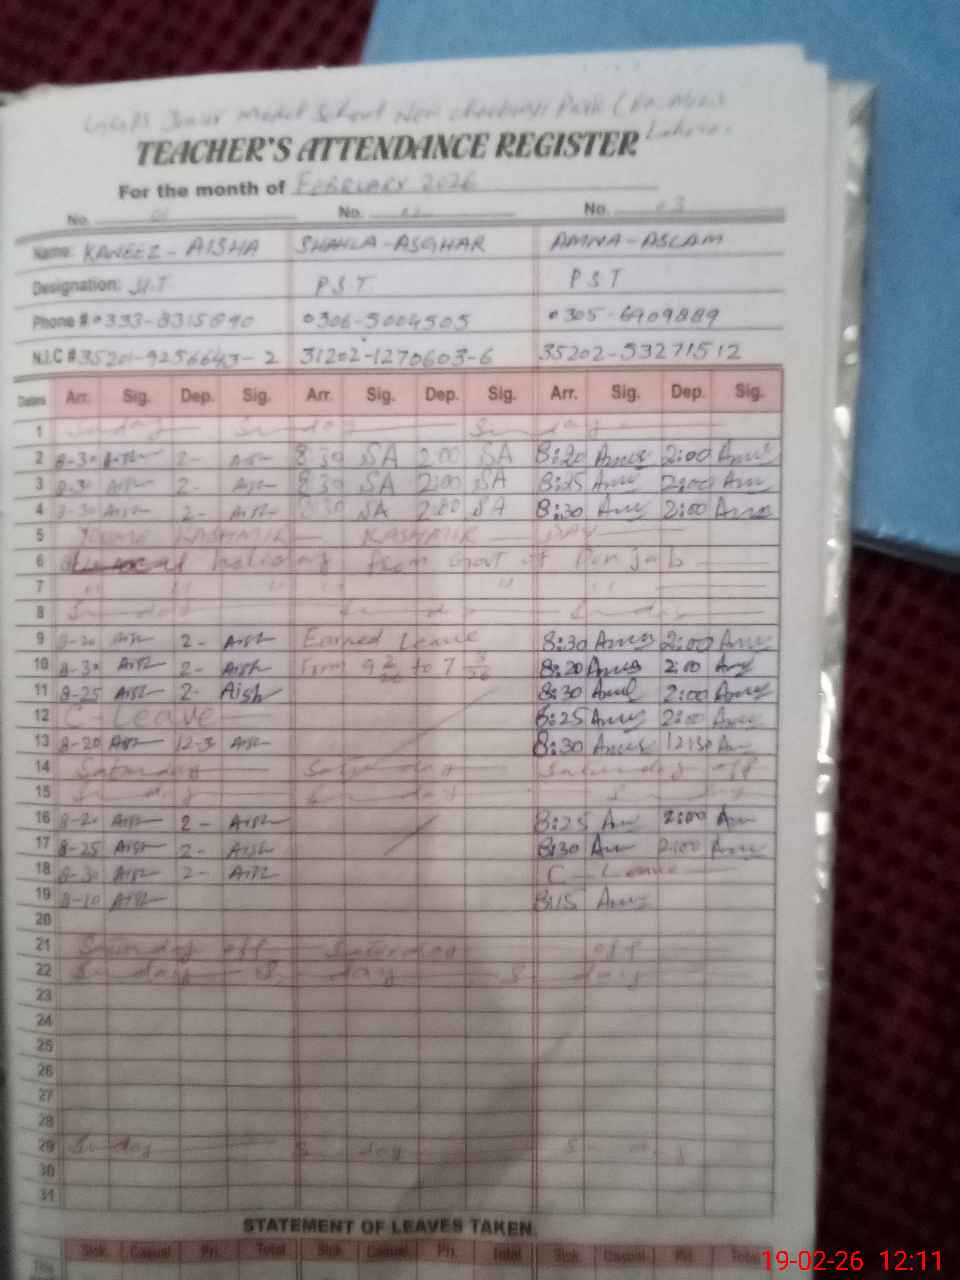 Junior Model School
Lahore.
TEACHER'S ATTENDANCE REGISTER
For the month of FEBRUARY 2026
No. 01 No. 02 No. 03
Name: KANEEZ - AISHA SHAHLA - ASGHAR AMNA - ASLAM
Designation: H.T P.S.T. P S T
Phone # 0333-8315890 0306-5004505 0305-6909889
N.I.C # 35201-9256643-2 31202-1270603-6 35202-53271512
Dates Arr. Sig. Dep. Sig. Arr. Sig. Dep. Sig. Arr. Sig. Dep. Sig.
1 Sunday Sunday Sunday
2 8-30 Aish 2- Aish 8 30 SA 2:00 SA 8:20 Amna 2:00 Amna
3 8-3 Aish 2- Aish 8 30 SA 2:00 SA 8:25 Amna 2:00 Amna
4 8-30 Aish 2- Aish 8 30 SA 2:00 SA 8:30 Amna 2:00 Amna
5 KASHMIR KASHMIR DAY
6 holiday from Govt of Punjab
7 " " " " "
8 Sunday Sunday Sunday
9 8-20 Aish 2- Aish Earned Leave 8:30 Amna 2:00 Amna
10 8-30 Aish 2- Aish From 9 2/26 to 7 3/26 8:20 Amna 2:00 Amna
11 8-25 Aish 2- Aish 8:30 Amna 2:00 Amna
12 C - Leave 8:25 Amna 2:00 Amna
13 8-20 Aish 12-3 Aish 8:30 Amna 12:30 Amna
14 Saturday Saturday Saturday off
15 Sunday Sunday Sunday
16 8-20 Aish 2- Aish 8:25 Amna 2:00 Amna
17 8-25 Aish 2- Aish 8:30 Amna 2:00 Amna
18 8-30 Aish 2- Aish C - Leave
19 8-10 Aish 8:15 Amna
20
21 Saturday off Saturday off
22 Sunday S day S day
23
24
25
26
27
28
29 Sunday S day S
30
31
STATEMENT OF LEAVES TAKEN.
Sick Casual Pri. Total Sick Casual Pri. Total Sick Casual Pri. Total
19-02-26 12:11